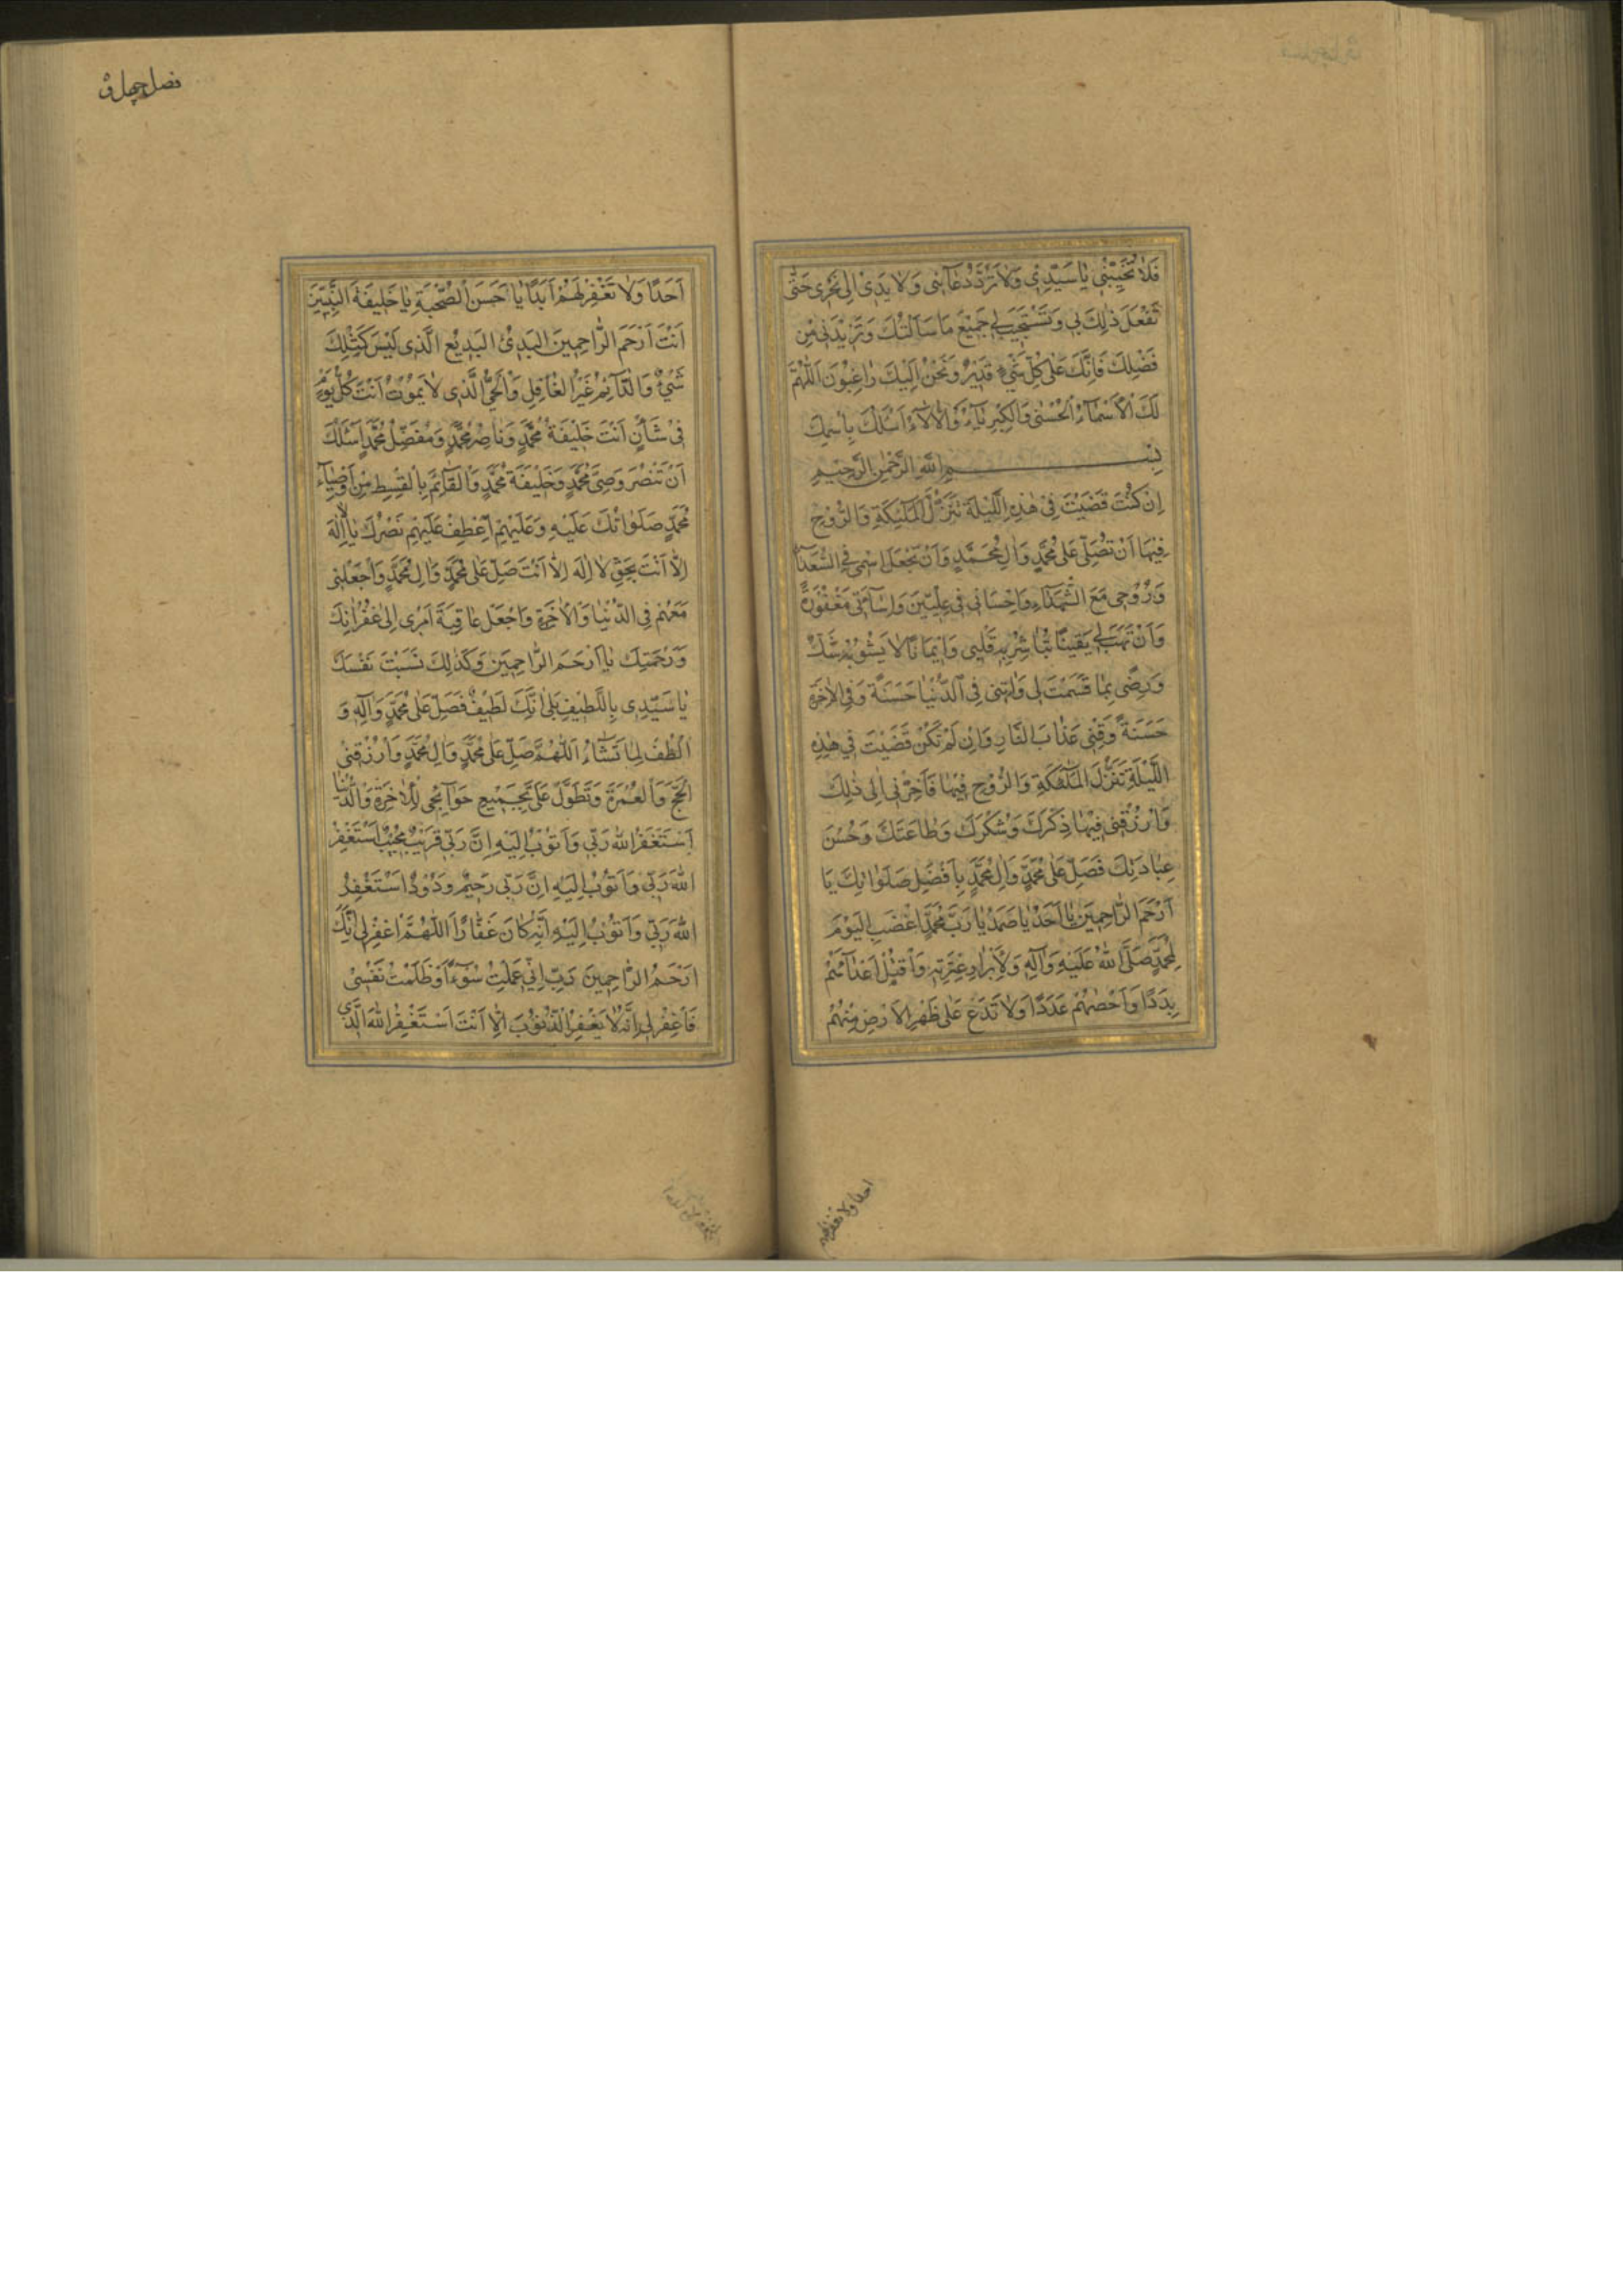 فَلاٰ تُخَيِّبْنِي يٰا سَيِّدِي وَلاٰ تَرُدَّ دُعٰآئِي وَلاٰ يَدِيْ اِلىٰ نَحْرِي حَتّٰى
تَفْعَلَ ذٰلِكَ بِي وَتَسْتَجِيبَ لِي جَمِيْعَ مَا سَاَلْتُكَ وَتَزِيْدَنِي مِنْ
فَضْلِكَ فَاِنَّكَ عَلىٰ كُلِّ شَيْءٍ قَدِيْرٌ وَنَحْنُ اِلَيْكَ رٰاغِبُوْنَ اَللّٰهُمَّ
لَكَ الْاَسْمٰآءُ الْحُسْنىٰ وَالْكِبْرِيٰآءُ وَالْاٰلٰآءُ اَسْئَلُكَ بِاسْمِكَ
بِسْمِ اللّٰهِ الرَّحْمٰنِ الرَّحِيْمِ
اِنْ كُنْتَ قَضَيْتَ فِيْ هٰذِهِ اللَّيْلَةِ تَنَزُّلَ الْمَلٰئِكَةِ وَالرُّوْحِ
فِيْهَا اَنْ تُصَلِّيَ عَلىٰ مُحَمَّدٍ وَاٰلِ مُحَمَّدٍ وَاَنْ تَجْعَلَ اسْمِي فِي السُّعَدٰآءِ
وَرُوْحِي مَعَ الشُّهَدٰآءِ وَاِحْسَانِي فِي عِلِّيّٖينَ وَاِسٰآئَتِي مَغْفُوْرَةً
وَاَنْ تَهَبَ لِي يَقِيْنًا تُبٰاشِرُ بِهِ قَلْبِي وَاِيْمَانًا لاٰ يَشُوْبُهُ شَكٌّ
وَرِضًى بِمٰا قَسَمْتَ لِي وَاٰتِنِي فِي الدُّنْيٰا حَسَنَةً وَفِي الْاٰخِرَةِ
حَسَنَةً وَقِنِي عَذٰابَ النَّارِ وَاِنْ لَمْ تَكُنْ قَضَيْتَ فِي هٰذِهِ
اللَّيْلَةِ تَنَزُّلَ الْمَلٰٓئِكَةِ وَالرُّوْحِ فِيْهٰا فَاَخِّرْنِي اِلىٰ ذٰلِكَ
وَارْزُقْنِي فِيْهٰا ذِكْرَكَ وَشُكْرَكَ وَطٰاعَتَكَ وَحُسْنَ
عِبٰادَتِكَ فَصَلِّ عَلىٰ مُحَمَّدٍ وَاٰلِ مُحَمَّدٍ بِاَفْضَلِ صَلَوٰاتِكَ يَا
اَرْحَمَ الرّٰاحِمِيْنَ يٰا اَحَدُ يٰا صَمَدُ يٰا رَبَّ مُحَمَّدٍ اغْضَبِ الْيَوْمَ
لِمُحَمَّدٍ صَلَّى اللّٰهُ عَلَيْهِ وَاٰلِهِ وَلِاَبْرٰارِ عِتْرَتِهِ وَاقْتُلْ اَعْدٰآئَهُمْ
بِدَدًا وَاَحْصِهِمْ عَدَدًا وَلاٰ تَدَعْ عَلىٰ ظَهْرِ الْاَرْضِ مِنْهُمْ
احدا ولا تغفر لهم
فصل چهل و
اَحَدًا وَلاٰ تَغْفِرْ لَهُمْ اَبَدًا يٰا حَسَنَ الصُّحْبَةِ يٰا خَلِيْفَةَ النَّبِيّٖينَ
اَنْتَ اَرْحَمُ الرّٰاحِمِيْنَ الْبَدِيْءُ الْبَدِيْعُ الَّذِي لَيْسَ كَمِثْلِكَ
شَيْءٌ وَالدّٰآئِمُ غَيْرُ الْغٰافِلِ وَالْحَيُّ الَّذِي لاٰ يَمُوْتُ اَنْتَ كُلَّ يَوْمٍ
فِي شَأْنٍ اَنْتَ خَلِيْفَةُ مُحَمَّدٍ وَنٰاصِرُ مُحَمَّدٍ وَمُفَضِّلُ مُحَمَّدٍ اَسْئَلُكَ
اَنْ تَنْصُرَ وَصِيَّ مُحَمَّدٍ وَخَلِيْفَةَ مُحَمَّدٍ وَالْقٰآئِمَ بِالْقِسْطِ مِنْ اَوْصِيٰآءِ
مُحَمَّدٍ صَلَوٰاتُكَ عَلَيْهِ وَعَلَيْهِمْ اَعْطِفْ عَلَيْهِمْ نَصْرَكَ يٰا لاٰ اِلٰهَ
اِلاّٰ اَنْتَ بِحَقِّ لاٰ اِلٰهَ اِلاّٰ اَنْتَ صَلِّ عَلىٰ مُحَمَّدٍ وَاٰلِ مُحَمَّدٍ وَاجْعَلْنِي
مَعَهُمْ فِي الدُّنْيٰا وَالْاٰخِرَةِ وَاجْعَلْ عٰاقِبَةَ اَمْرِي اِلىٰ غُفْرٰانِكَ
وَرَحْمَتِكَ يٰا اَرْحَمَ الرّٰاحِمِيْنَ وَكَذٰلِكَ نَسَبْتَ نَفْسَكَ
يٰا سَيِّدِي بِاللَّطِيْفِ بَلىٰ اِنَّكَ لَطِيْفٌ فَصَلِّ عَلىٰ مُحَمَّدٍ وَاٰلِهِ وَ
الْطُفْ لِمٰا تَشٰٓاءُ اَللّٰهُمَّ صَلِّ عَلىٰ مُحَمَّدٍ وَاٰلِ مُحَمَّدٍ وَارْزُقْنِي
الْحَجَّ وَالْعُمْرَةَ وَتَطَوَّلْ عَلَيَّ بِجَمِيْعِ حَوٰآئِجِي لِلْاٰخِرَةِ وَالدُّنْيٰا
اَسْتَغْفِرُ اللّٰهَ رَبِّي وَاَتُوْبُ اِلَيْهِ اِنَّ رَبِّي قَرِيْبٌ مُجِيْبٌ اَسْتَغْفِرُ
اللّٰهَ رَبِّي وَاَتُوْبُ اِلَيْهِ اِنَّ رَبِّي رَحِيْمٌ وَدُوْدٌ اَسْتَغْفِرُ
اللّٰهَ رَبِّي وَاَتُوْبُ اِلَيْهِ اِنَّهُ كٰانَ غَفّٰارًا اَللّٰهُمَّ اغْفِرْ لِي اِنَّكَ
اَرْحَمُ الرّٰاحِمِيْنَ رَبِّ اِنِّي عَمِلْتُ سُوْٓءًا وَظَلَمْتُ نَفْسِي
فَاغْفِرْ لِي اِنَّهُ لاٰ يَغْفِرُ الذُّنُوْبَ اِلاّٰ اَنْتَ اَسْتَغْفِرُ اللّٰهَ الَّذِي